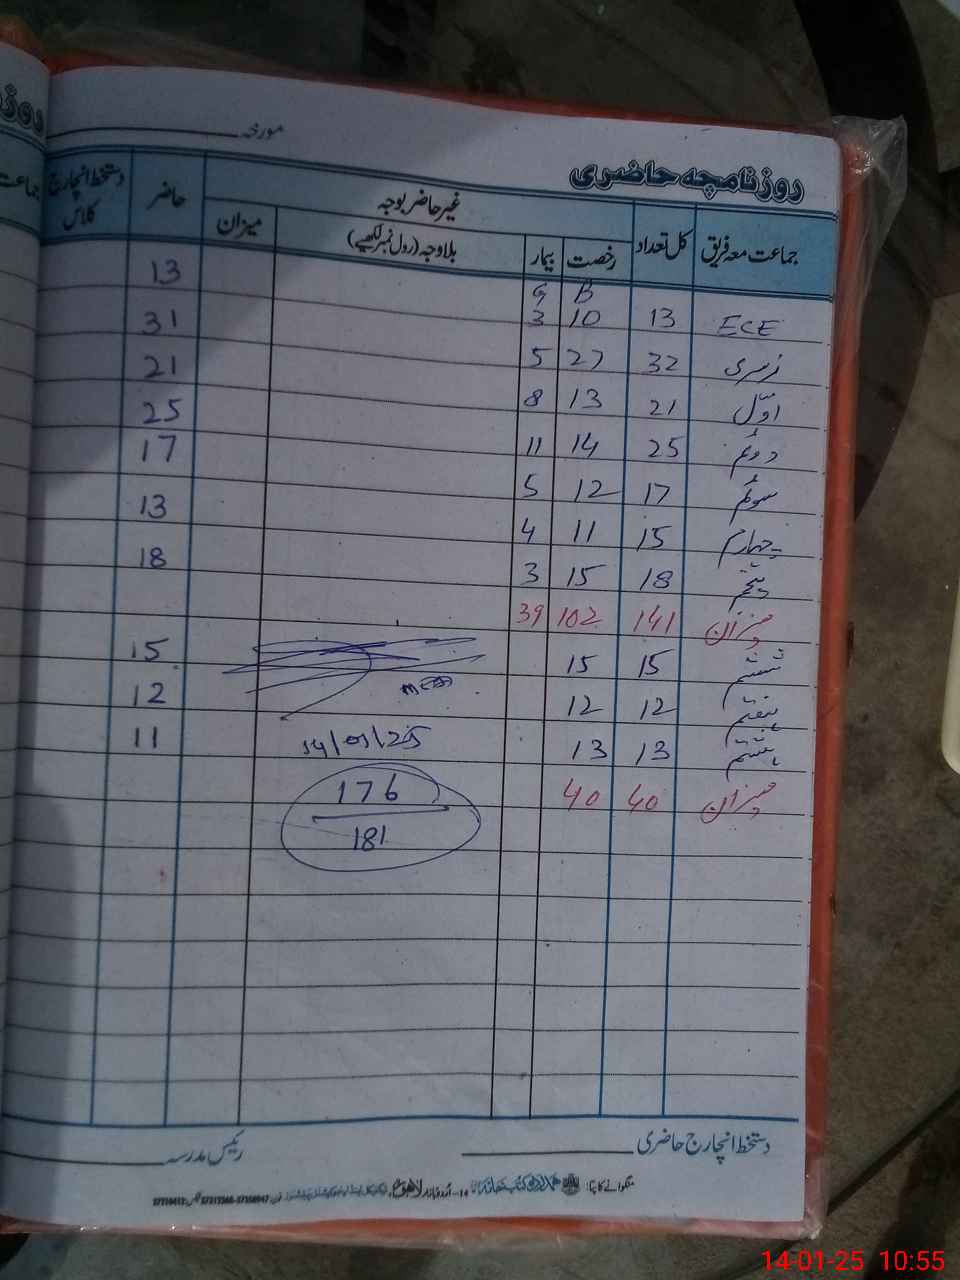 روزنامچہ حاضری
مورخہ
جماعت معہ فریق کل تعداد غیر حاضر بوجہ حاضر دستخط انچارج کلاس
رخصت بیمار بلاوجہ (رول نمبر لکھیے) میزان
B G
ECE 13 10 3 13
نرسری 32 27 5 31
اوّل 21 13 8 21
دوئم 25 14 11 25
سوئم 17 12 5 17
چہارم 15 11 4 13
پنجم 18 15 3 18
میزان 141 102 39
ششم 15 15 15
ہفتم 12 12 12
ہشتم 13 13 11
14/01/25
میزان 40 40
176
181
دستخط انچارج حاضری ریمکس مدرسہ
منگوانے کا پتا: ہمدرد کتب خانہ 14-اردو بازار لاہور
14-01-25 10:55